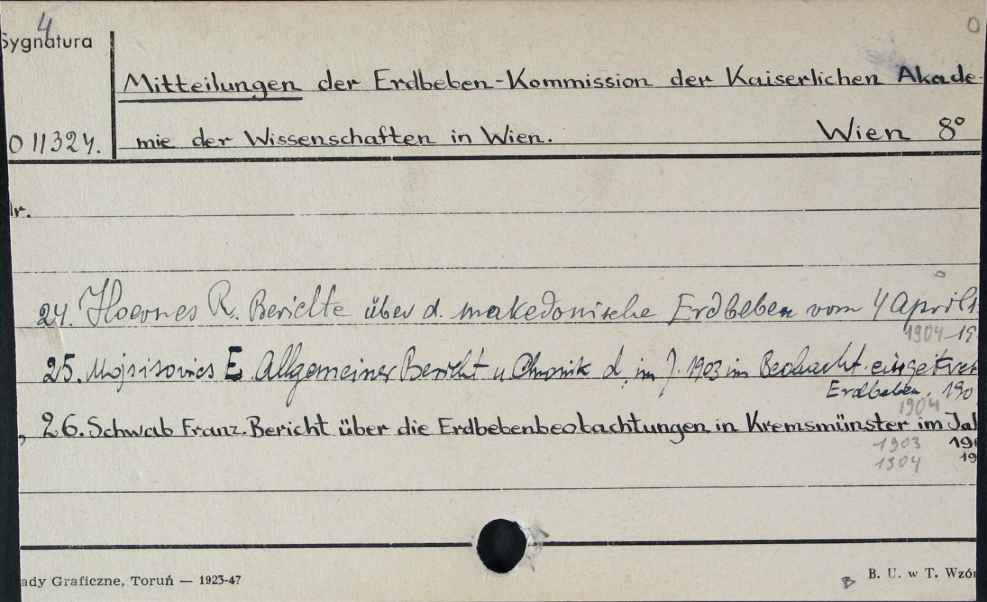 4
0
Sygnatura
Mitteilungen der Erdbeben-Kommission der Kaiserlichen Akade-
011324. mie der Wissenschaften in Wien. Wien 8°
r.
24. Hoernes R. Berichte über d. makedonische Erdbeben vom 4 April 1
1904 19
25. Mojsisovics E Allgemeiner Bericht u Chronik d. im J. 1903 im Beobacht. eingetret
Erdbeben. 190
1904
, 26. Schwab Franz. Bericht über die Erdbebenbeobachtungen in Kremsmünster im Jah
1903 190
1904 19
ady Graficzne, Toruń — 1923-47
B. U. w T. Wzór